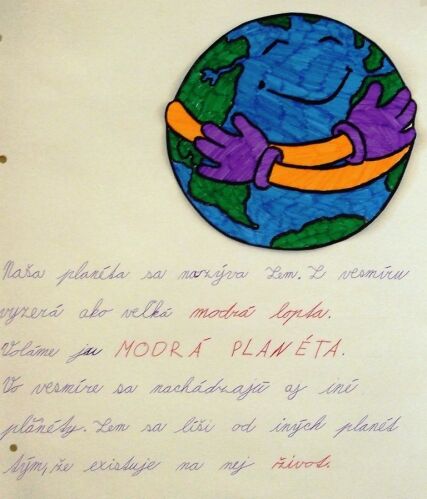 Naša planéta sa nazýva Zem. Z vesmíru
vyzerá ako veľká modrá lopta.
Voláme ju MODRÁ PLANÉTA.
Vo vesmíre sa nachádzajú aj iné
planéty. Zem sa líši od iných planét
tým, že existuje na nej život.